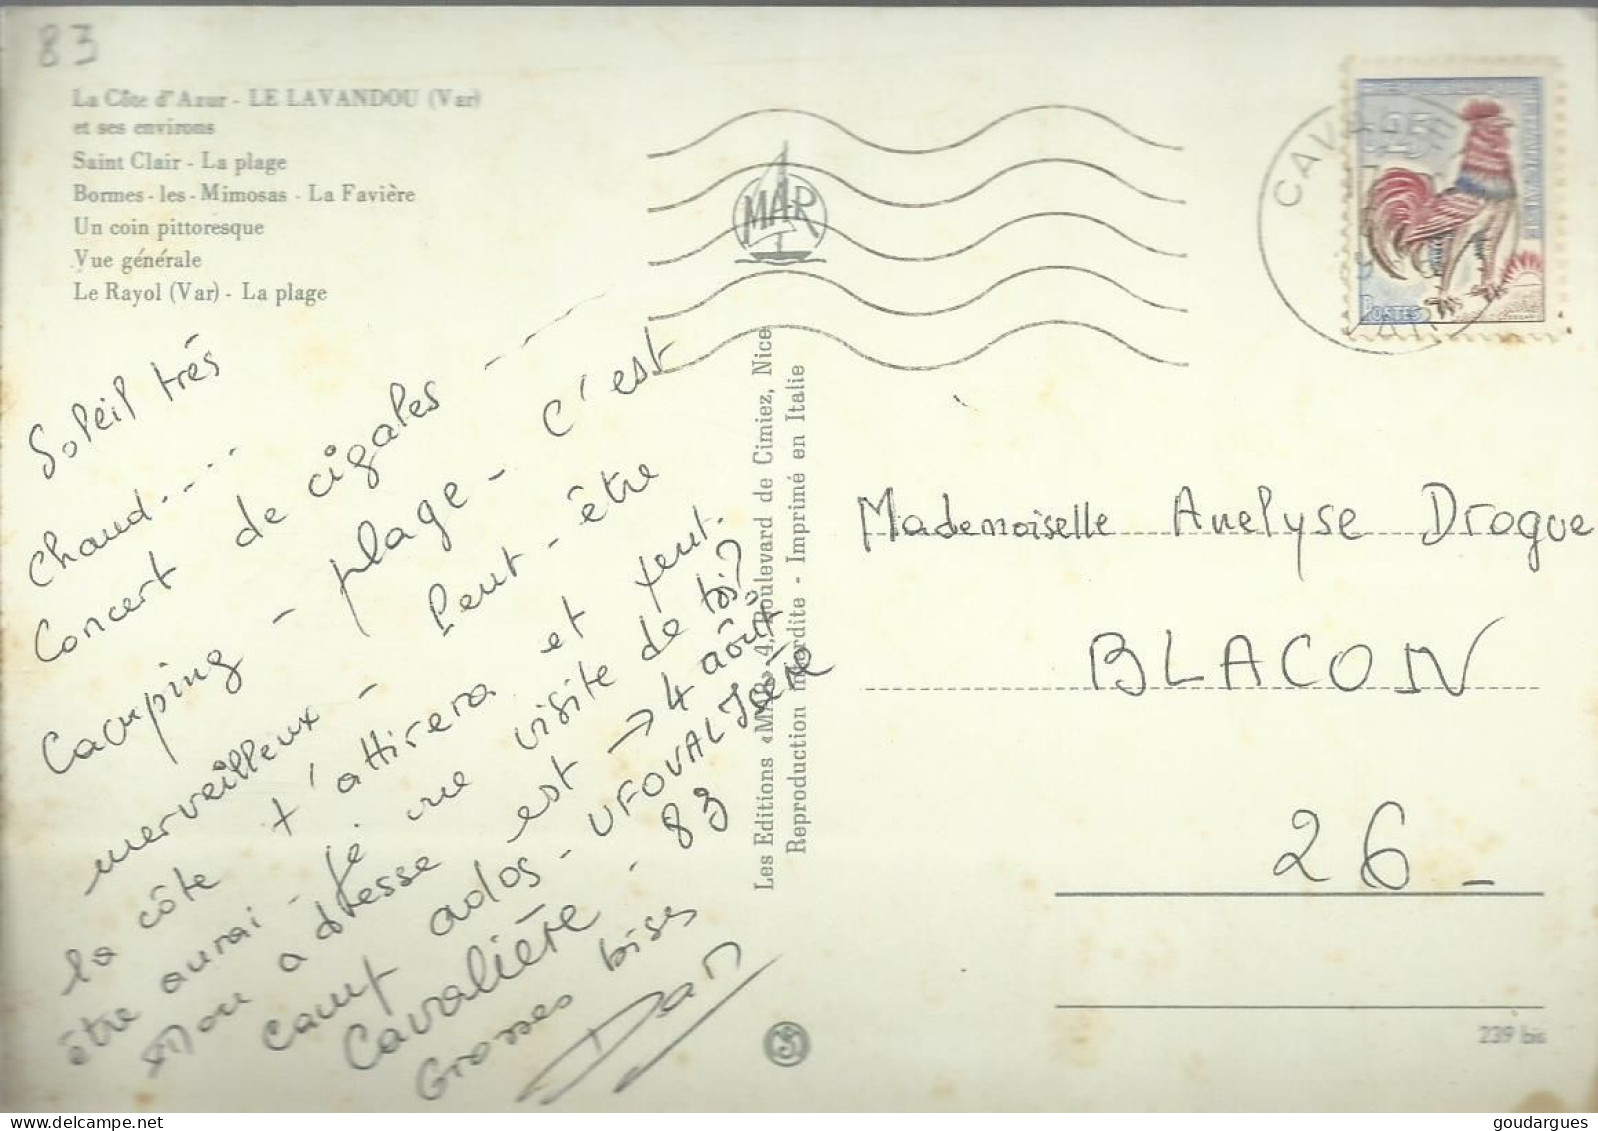 83
La Côte d'Azur - LE LAVANDOU (Var)
et ses environs
Saint Clair - La plage
Bormes-les-Mimosas - La Favière
Un coin pittoresque
Vue générale
Le Rayol (Var) - La plage
MAR
CAVA
25
POSTES
Soleil trés
chaud....
Concert de cigales ----
Camping - plage - c'est
merveilleux - Peut-être
la côte t'attirera et peut.
être aurai-je une visite de toi?
Mon adresse est → 4 août
camp ados - UFOVAL Isère
Cavalière - 83
Grosses bises
Dan
Les Editions «MAR» 4, Boulevard de Cimiez, Nice
Reproduction interdite - Imprimé en Italie
Mademoiselle Anelyse Drogue
BLACON
26 -
239 bis
goudargues © delcampe.net